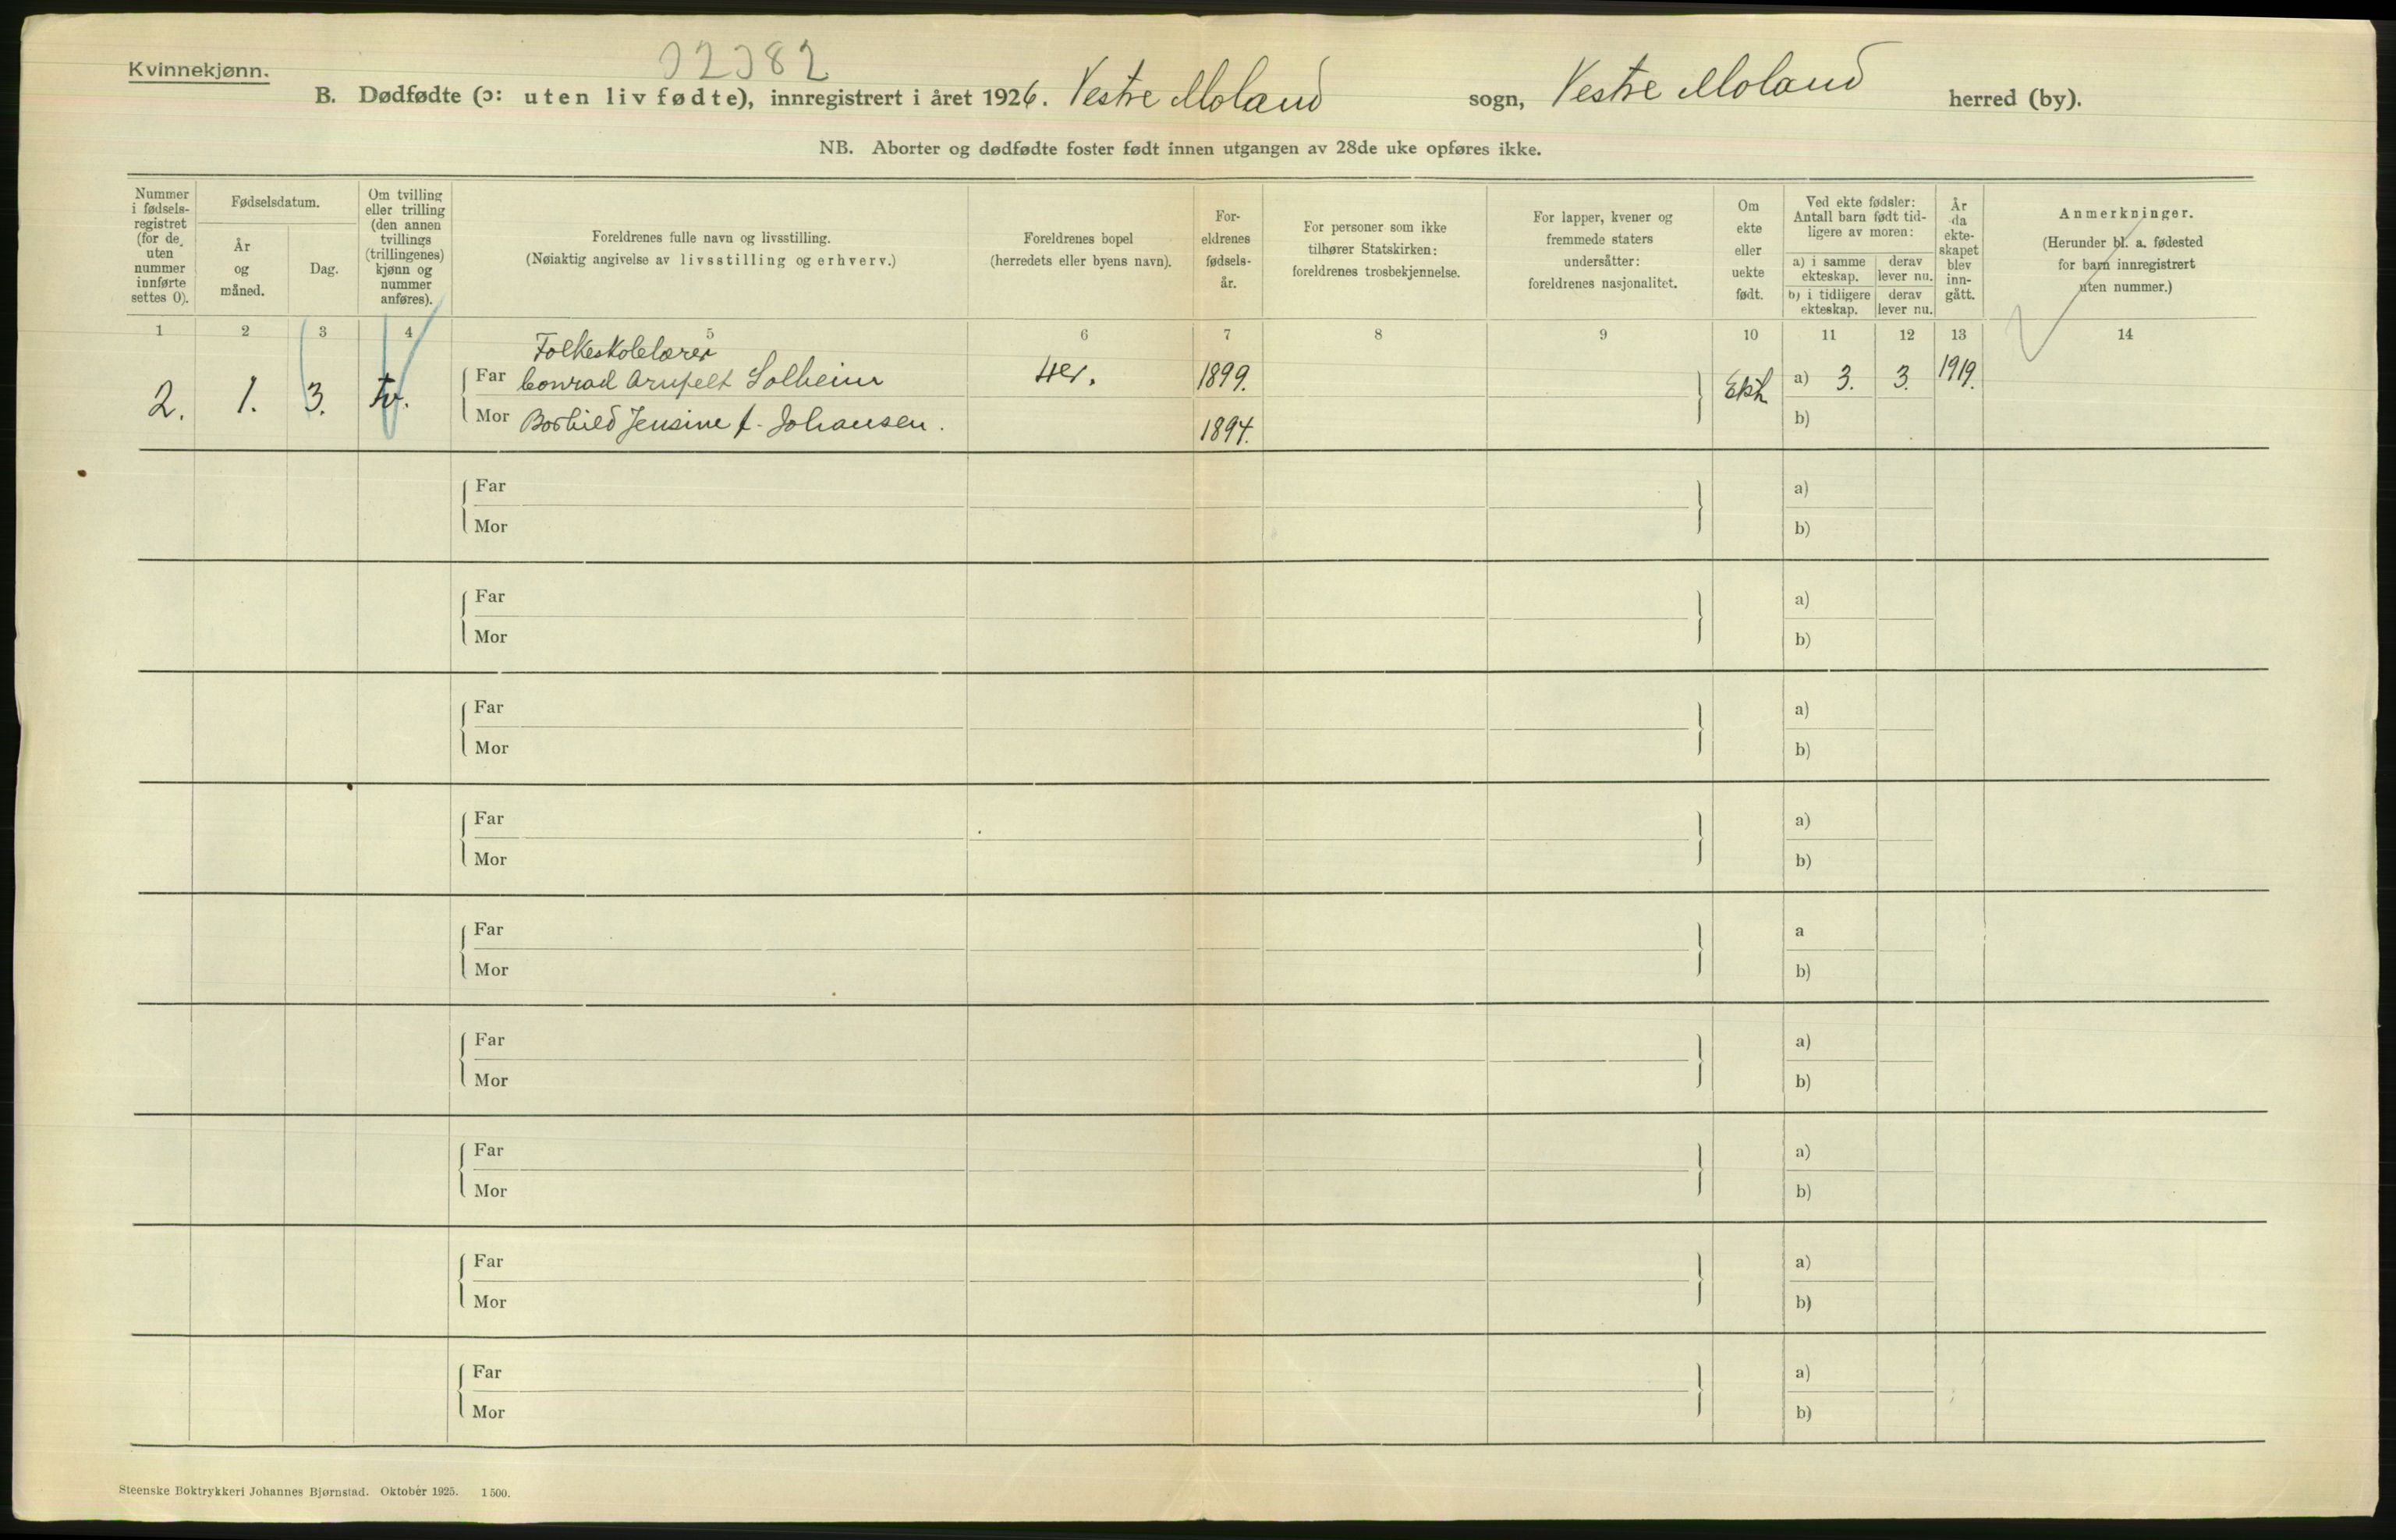 Kvinnekjønn.
B. Dødfødte (ɔ: uten liv fødte), innregistrert i året 1926. Vestre Moland sogn, Vestre Moland herred (by).
NB. Aborter og dødfødte foster født innen utgangen av 28de uke opføres ikke.
Nummer i fødsels-registret (for de uten nummer innførte settes 0).
Fødselsdatum.
År og måned.
Dag.
Om tvilling eller trilling (den annen tvillings (trillingenes) kjønn og nummer anføres).
Foreldrenes fulle navn og livsstilling.
(Nøiaktig angivelse av livsstilling og erhverv.)
Foreldrenes bopel
(herredets eller byens navn).
For-eldrenes fødsels-år.
For personer som ikke tilhører Statskirken: foreldrenes trosbekjennelse.
For lapper, kvener og fremmede staters undersåtter: foreldrenes nasjonalitet.
Om ekte eller uekte født.
Ved ekte fødsler: Antall barn født tid-ligere av moren:
a) i samme ekteskap.
derav lever nu.
b) i tidligere ekteskap.
derav lever nu.
År da ekte-skapet blev inn-gått.
Anmerkninger.
(Herunder bl. a. fødested for barn innregistrert uten nummer.)
1 2 3 4 5 6 7 8 9 10 11 12 13 14
Folkeskolelærer
2. 1. 3. tv. Far Conrad Solheim Her. 1899. Ekte a) 3. 3. 1919.
Mor Borhild Jensine f. Johansen. 1894. b)
Far a)
Mor b)
Far a)
Mor b)
Far a)
Mor b)
Far a)
Mor b)
Far a
Mor b)
Far a)
Mor b)
Far a)
Mor b)
Far a)
Mor b)
Far a)
Mor b)
Steenske Boktrykkeri Johannes Bjørnstad. Oktober 1925. 1500.